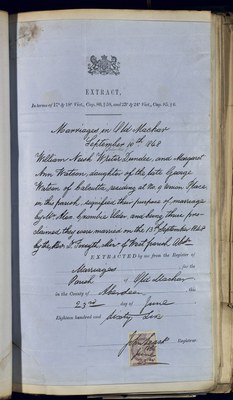 EXTRACT,
In terms of 17° & 18° Vict., Cap. 80, § 56, and 23° & 24° Vict., Cap. 85, § 9.
Marriages in Old Machar
September 10th 1848
William Nish Writer Dundee, and Margaret
Ann Watson, daughter of the late George
Watson of Calcutta, residing at No. 9 Union Place
in this parish, signified their purpose of marriage
by Wr Alex Combie Adv. and being three pro-
claimed they were married on the 13th September 1848
by the Rev. Forsyth, West parish, Abdn
EXTRACTED by me, from the Register of
Marriages for the
Parish of Old Machar
in the County of Aberdeen this
23rd day of June
Eighteen hundred and sixty six
Registrar